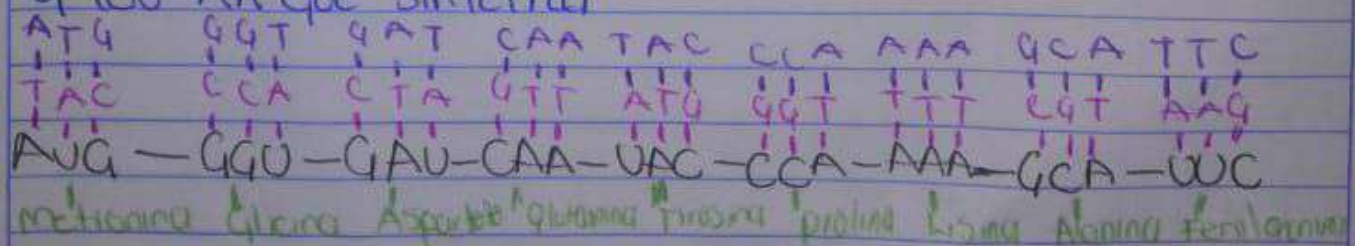 que
ATG GGT GAT CAA TAC CCA AAA GCA TTC
TAC CCA CTA GTT ATG GGT TTT CGT AAG
AUG - GGU - GAU - CAA - UAC - CCA - AAA - GCA - UUC
metionina Glicina glutamina Tirosina prolina Lisina Alanina